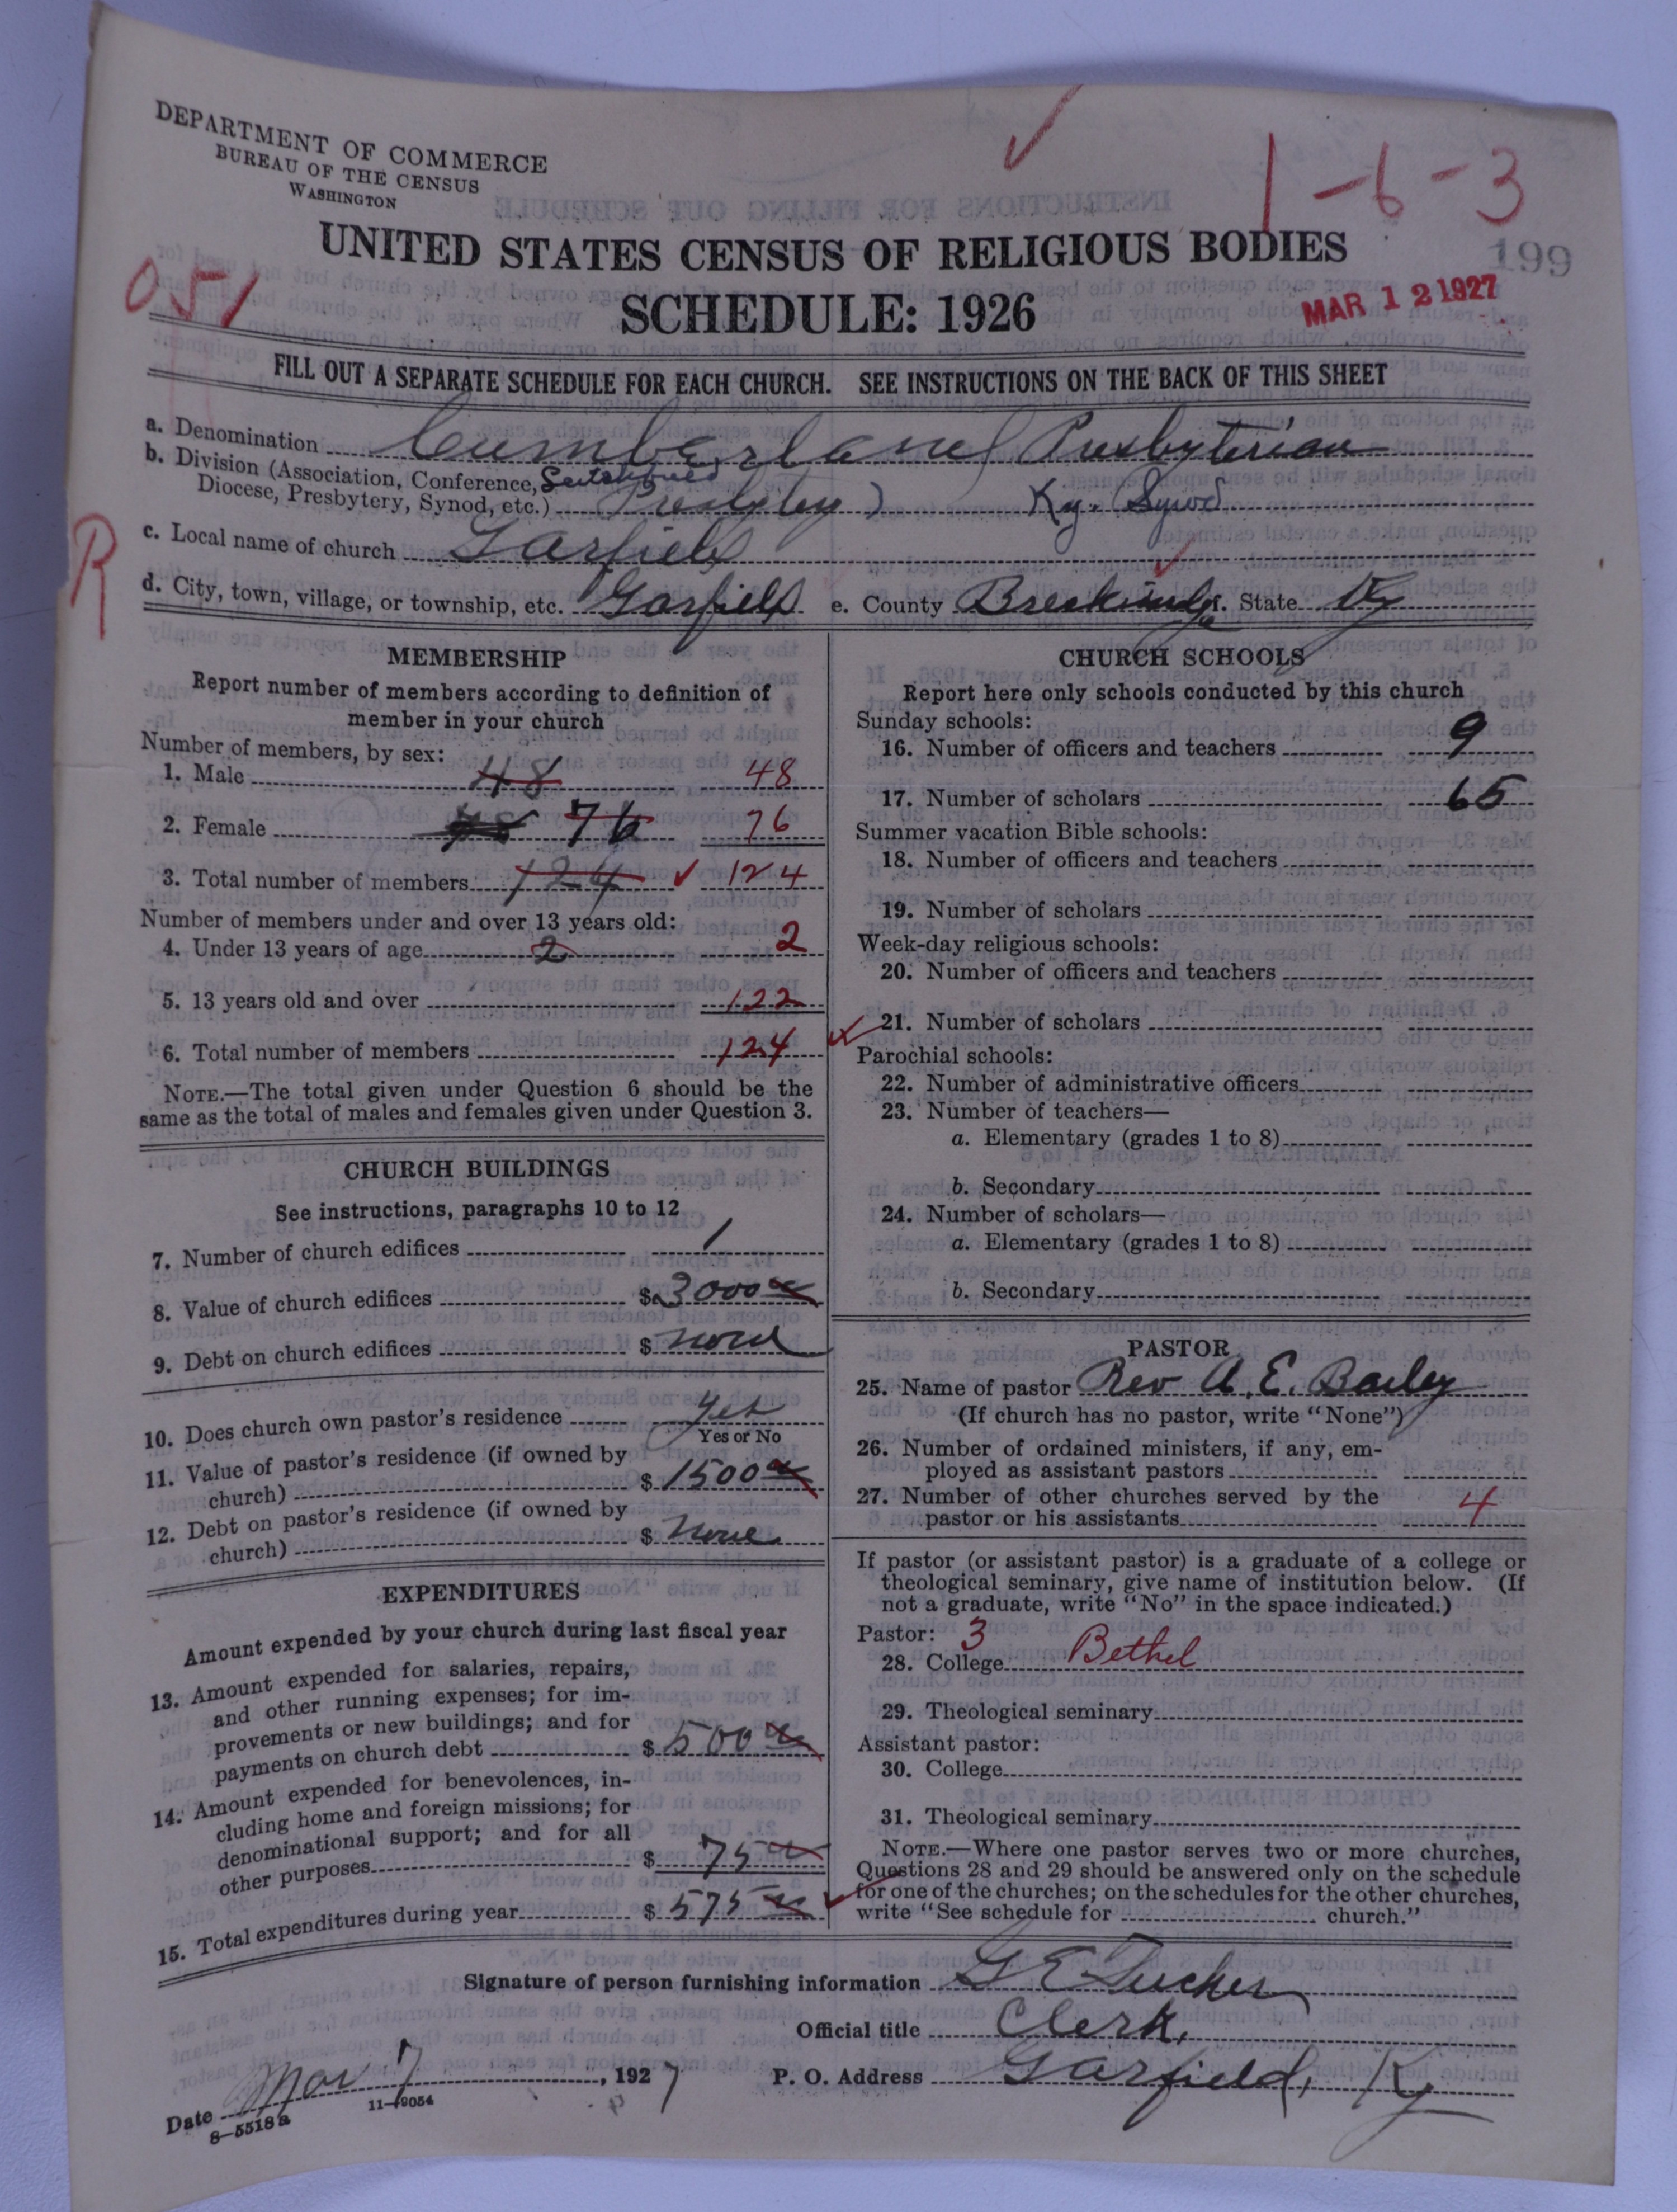 DEPARTMENT OF COMMERCE
BUREAU OF THE CENSUS
WASHINGTON
1-6-3
UNITED STATES CENSUS OF RELIGIOUS BODIES
199
051
SCHEDULE: 1926
MAR 12 1927
FILL OUT A SEPARATE SCHEDULE FOR EACH CHURCH. SEE INSTRUCTIONS ON THE BACK OF THIS SHEET
a. Denomination Cumberland Presbyterian
b. Division (Association, Conference,
Diocese, Presbytery, Synod, etc.) Ky. Synod
R
c. Local name of church Garfield
d. City, town, village, or township, etc. Garfield e. County Breckinridge f. State Ky
MEMBERSHIP
Report number of members according to definition of
member in your church
Number of members, by sex:
1. Male 48 48
2. Female 76 76
3. Total number of members 124 124
Number of members under and over 13 years old:
4. Under 13 years of age 2 2
5. 13 years old and over 122
6. Total number of members 124
NOTE.—The total given under Question 6 should be the
same as the total of males and females given under Question 3.
CHURCH BUILDINGS
See instructions, paragraphs 10 to 12
7. Number of church edifices 1
8. Value of church edifices $3000
9. Debt on church edifices $ none
10. Does church own pastor's residence yes
Yes or No
11. Value of pastor's residence (if owned by
church) $1500
12. Debt on pastor's residence (if owned by
church) $ None
EXPENDITURES
Amount expended by your church during last fiscal year
13. Amount expended for salaries, repairs,
and other running expenses; for im-
provements or new buildings; and for
payments on church debt $500
14. Amount expended for benevolences, in-
cluding home and foreign missions; for
denominational support; and for all
other purposes $ 75
15. Total expenditures during year $ 575
CHURCH SCHOOLS
Report here only schools conducted by this church
Sunday schools:
16. Number of officers and teachers 9
17. Number of scholars 65
Summer vacation Bible schools:
18. Number of officers and teachers
19. Number of scholars
Week-day religious schools:
20. Number of officers and teachers
21. Number of scholars
Parochial schools:
22. Number of administrative officers
23. Number of teachers—
a. Elementary (grades 1 to 8)
b. Secondary
24. Number of scholars—
a. Elementary (grades 1 to 8)
b. Secondary
PASTOR
25. Name of pastor Rev A. E. Bailey
(If church has no pastor, write "None")
26. Number of ordained ministers, if any, em-
ployed as assistant pastors
27. Number of other churches served by the
pastor or his assistants 4
If pastor (or assistant pastor) is a graduate of a college or
theological seminary, give name of institution below. (If
not a graduate, write "No" in the space indicated.)
Pastor: 3
28. College Bethel
29. Theological seminary
Assistant pastor:
30. College
31. Theological seminary
NOTE.—Where one pastor serves two or more churches,
Questions 28 and 29 should be answered only on the schedule
for one of the churches; on the schedules for the other churches,
write "See schedule for church."
Signature of person furnishing information G E Tucker
Official title Clerk,
Date Mar 7, 1927 P. O. Address Garfield, Ky
8-5518a 11-9054